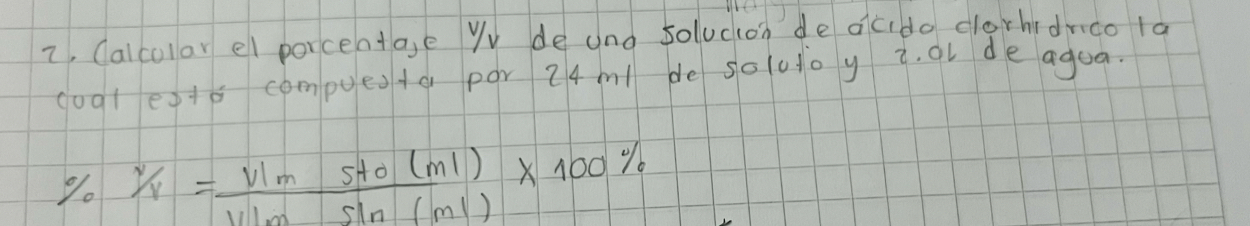 2. Calcular el porcentaje V/V de una solución de ácido clorhidrico la
cual está compuesta por 24 ml de soluto y 2.0L de agua.
% V/V = Vlm sto (ml) / Vlm sln (ml) x 100 %